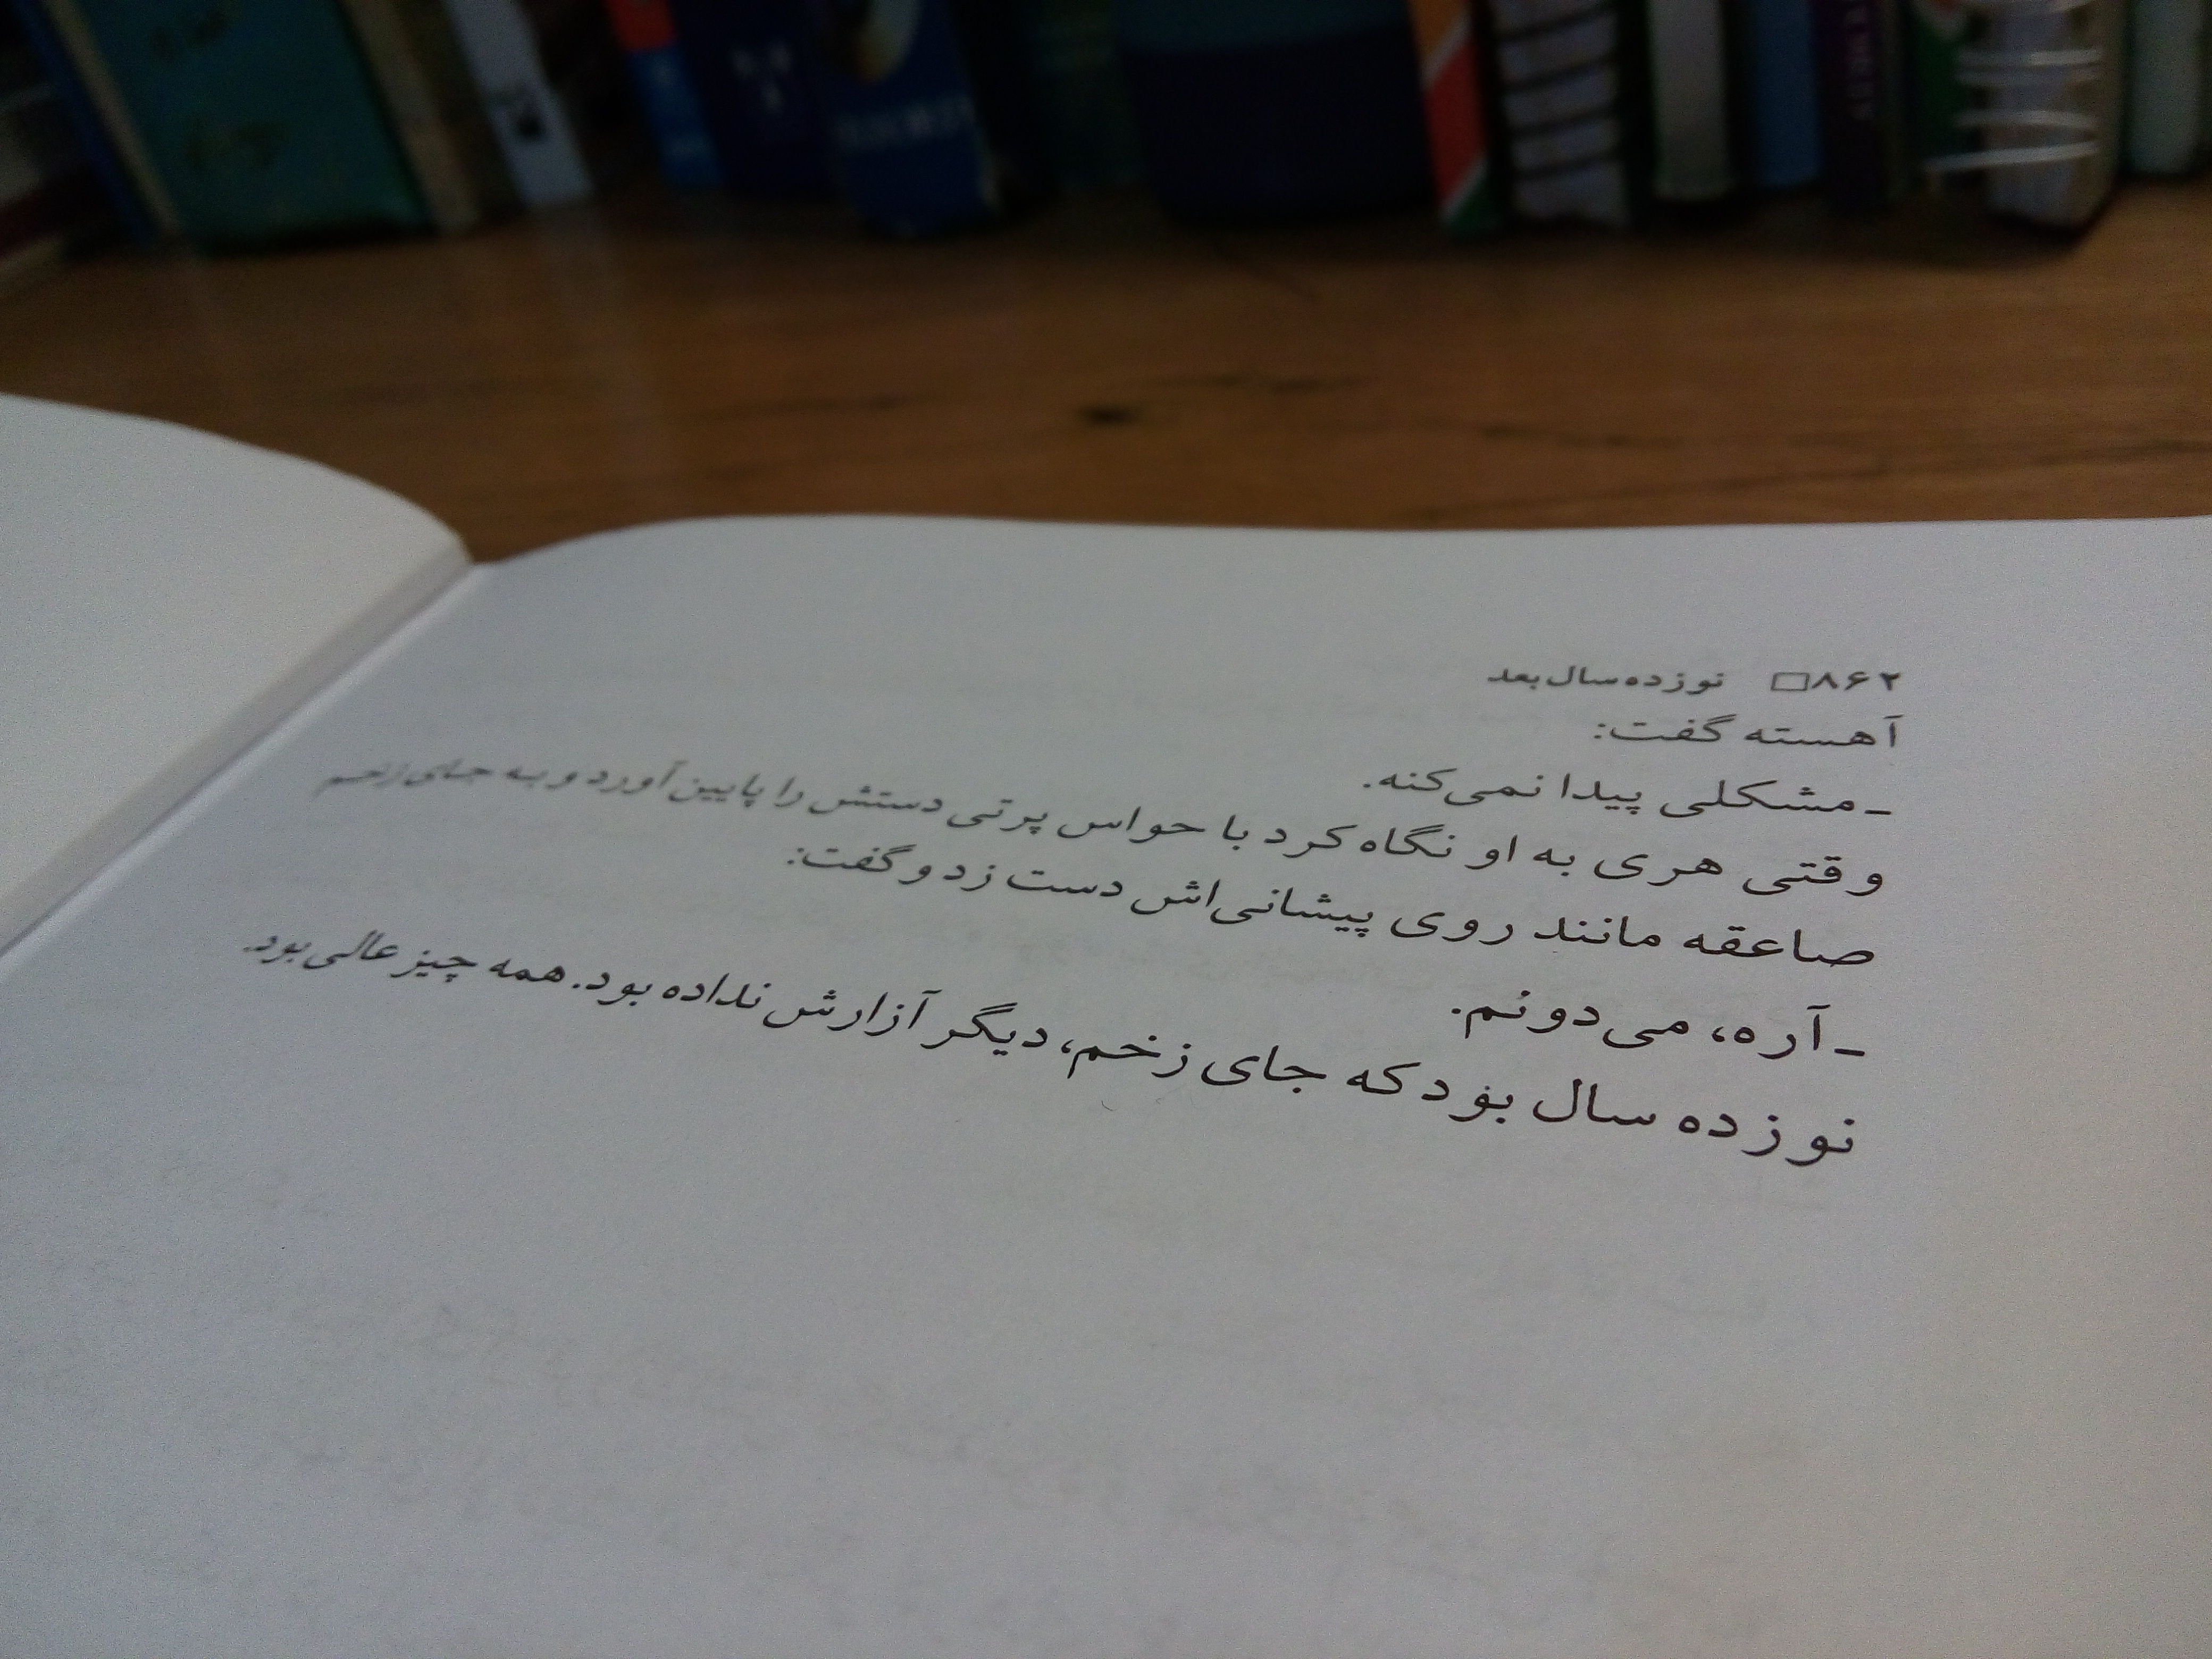 ۸۶۲ □ نوزده سال بعد
آهسته گفت:
ـ مشکلی پیدا نمی‌کنه.
وقتی هری به او نگاه کرد با حواس پرتی دستش را پایین آورد و به جای زخم
صاعقه مانند روی پیشانی‌اش دست زد و گفت:
ـ آره، می‌دونم.
نوزده سال بود که جای زخم، دیگر آزارش نداده بود. همه چیز عالی بود.